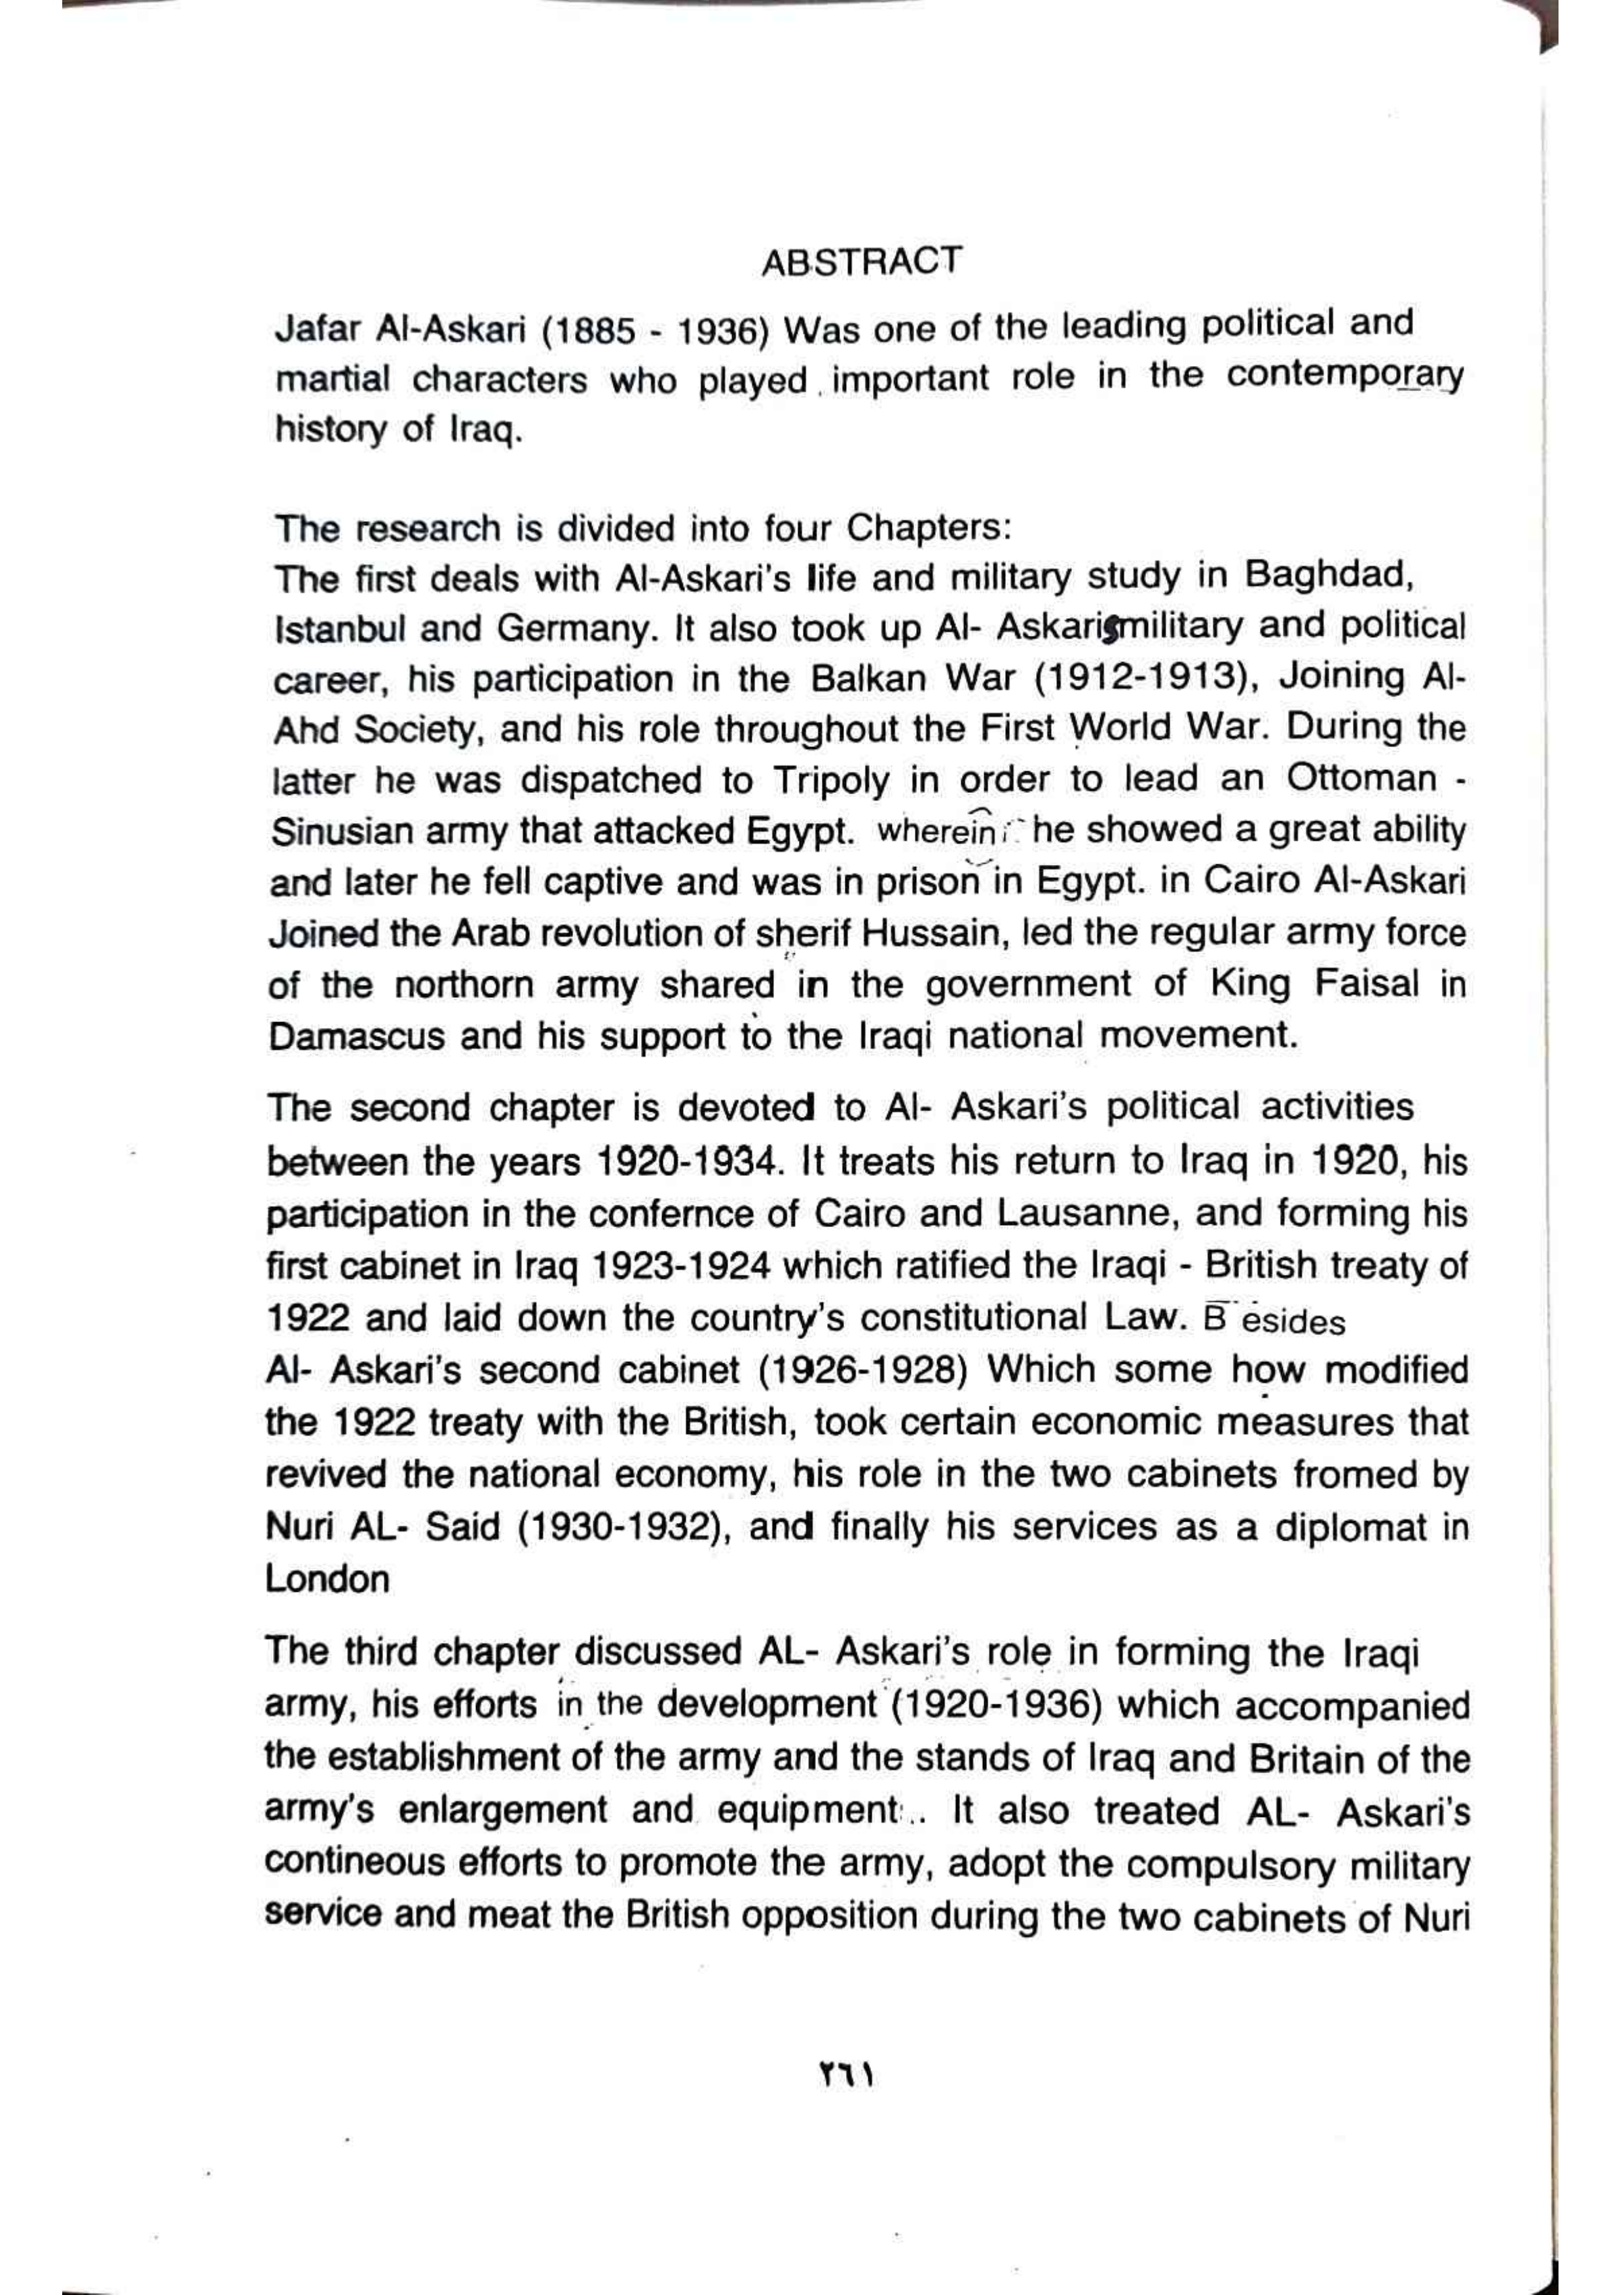 ABSTRACT
Jafar Al-Askari (1885 - 1936) Was one of the leading political and
martial characters who played important role in the contemporary
history of Iraq.
The research is divided into four Chapters:
The first deals with Al-Askari's life and military study in Baghdad,
Istanbul and Germany. It also took up Al- Askari's military and political
career, his participation in the Balkan War (1912-1913), Joining Al-
Ahd Society, and his role throughout the First World War. During the
latter he was dispatched to Tripoly in order to lead an Ottoman -
Sinusian army that attacked Egypt. wherein he showed a great ability
and later he fell captive and was in prison in Egypt. in Cairo Al-Askari
Joined the Arab revolution of sherif Hussain, led the regular army force
of the northorn army shared in the government of King Faisal in
Damascus and his support to the Iraqi national movement.
The second chapter is devoted to Al- Askari's political activities
between the years 1920-1934. It treats his return to Iraq in 1920, his
participation in the confernce of Cairo and Lausanne, and forming his
first cabinet in Iraq 1923-1924 which ratified the Iraqi - British treaty of
1922 and laid down the country's constitutional Law. Besides
Al- Askari's second cabinet (1926-1928) Which some how modified
the 1922 treaty with the British, took certain economic measures that
revived the national economy, his role in the two cabinets fromed by
Nuri AL- Said (1930-1932), and finally his services as a diplomat in
London
The third chapter discussed AL- Askari's role in forming the Iraqi
army, his efforts in the development (1920-1936) which accompanied
the establishment of the army and the stands of Iraq and Britain of the
army's enlargement and equipment.. It also treated AL- Askari's
contineous efforts to promote the army, adopt the compulsory military
service and meat the British opposition during the two cabinets of Nuri
٢٦١